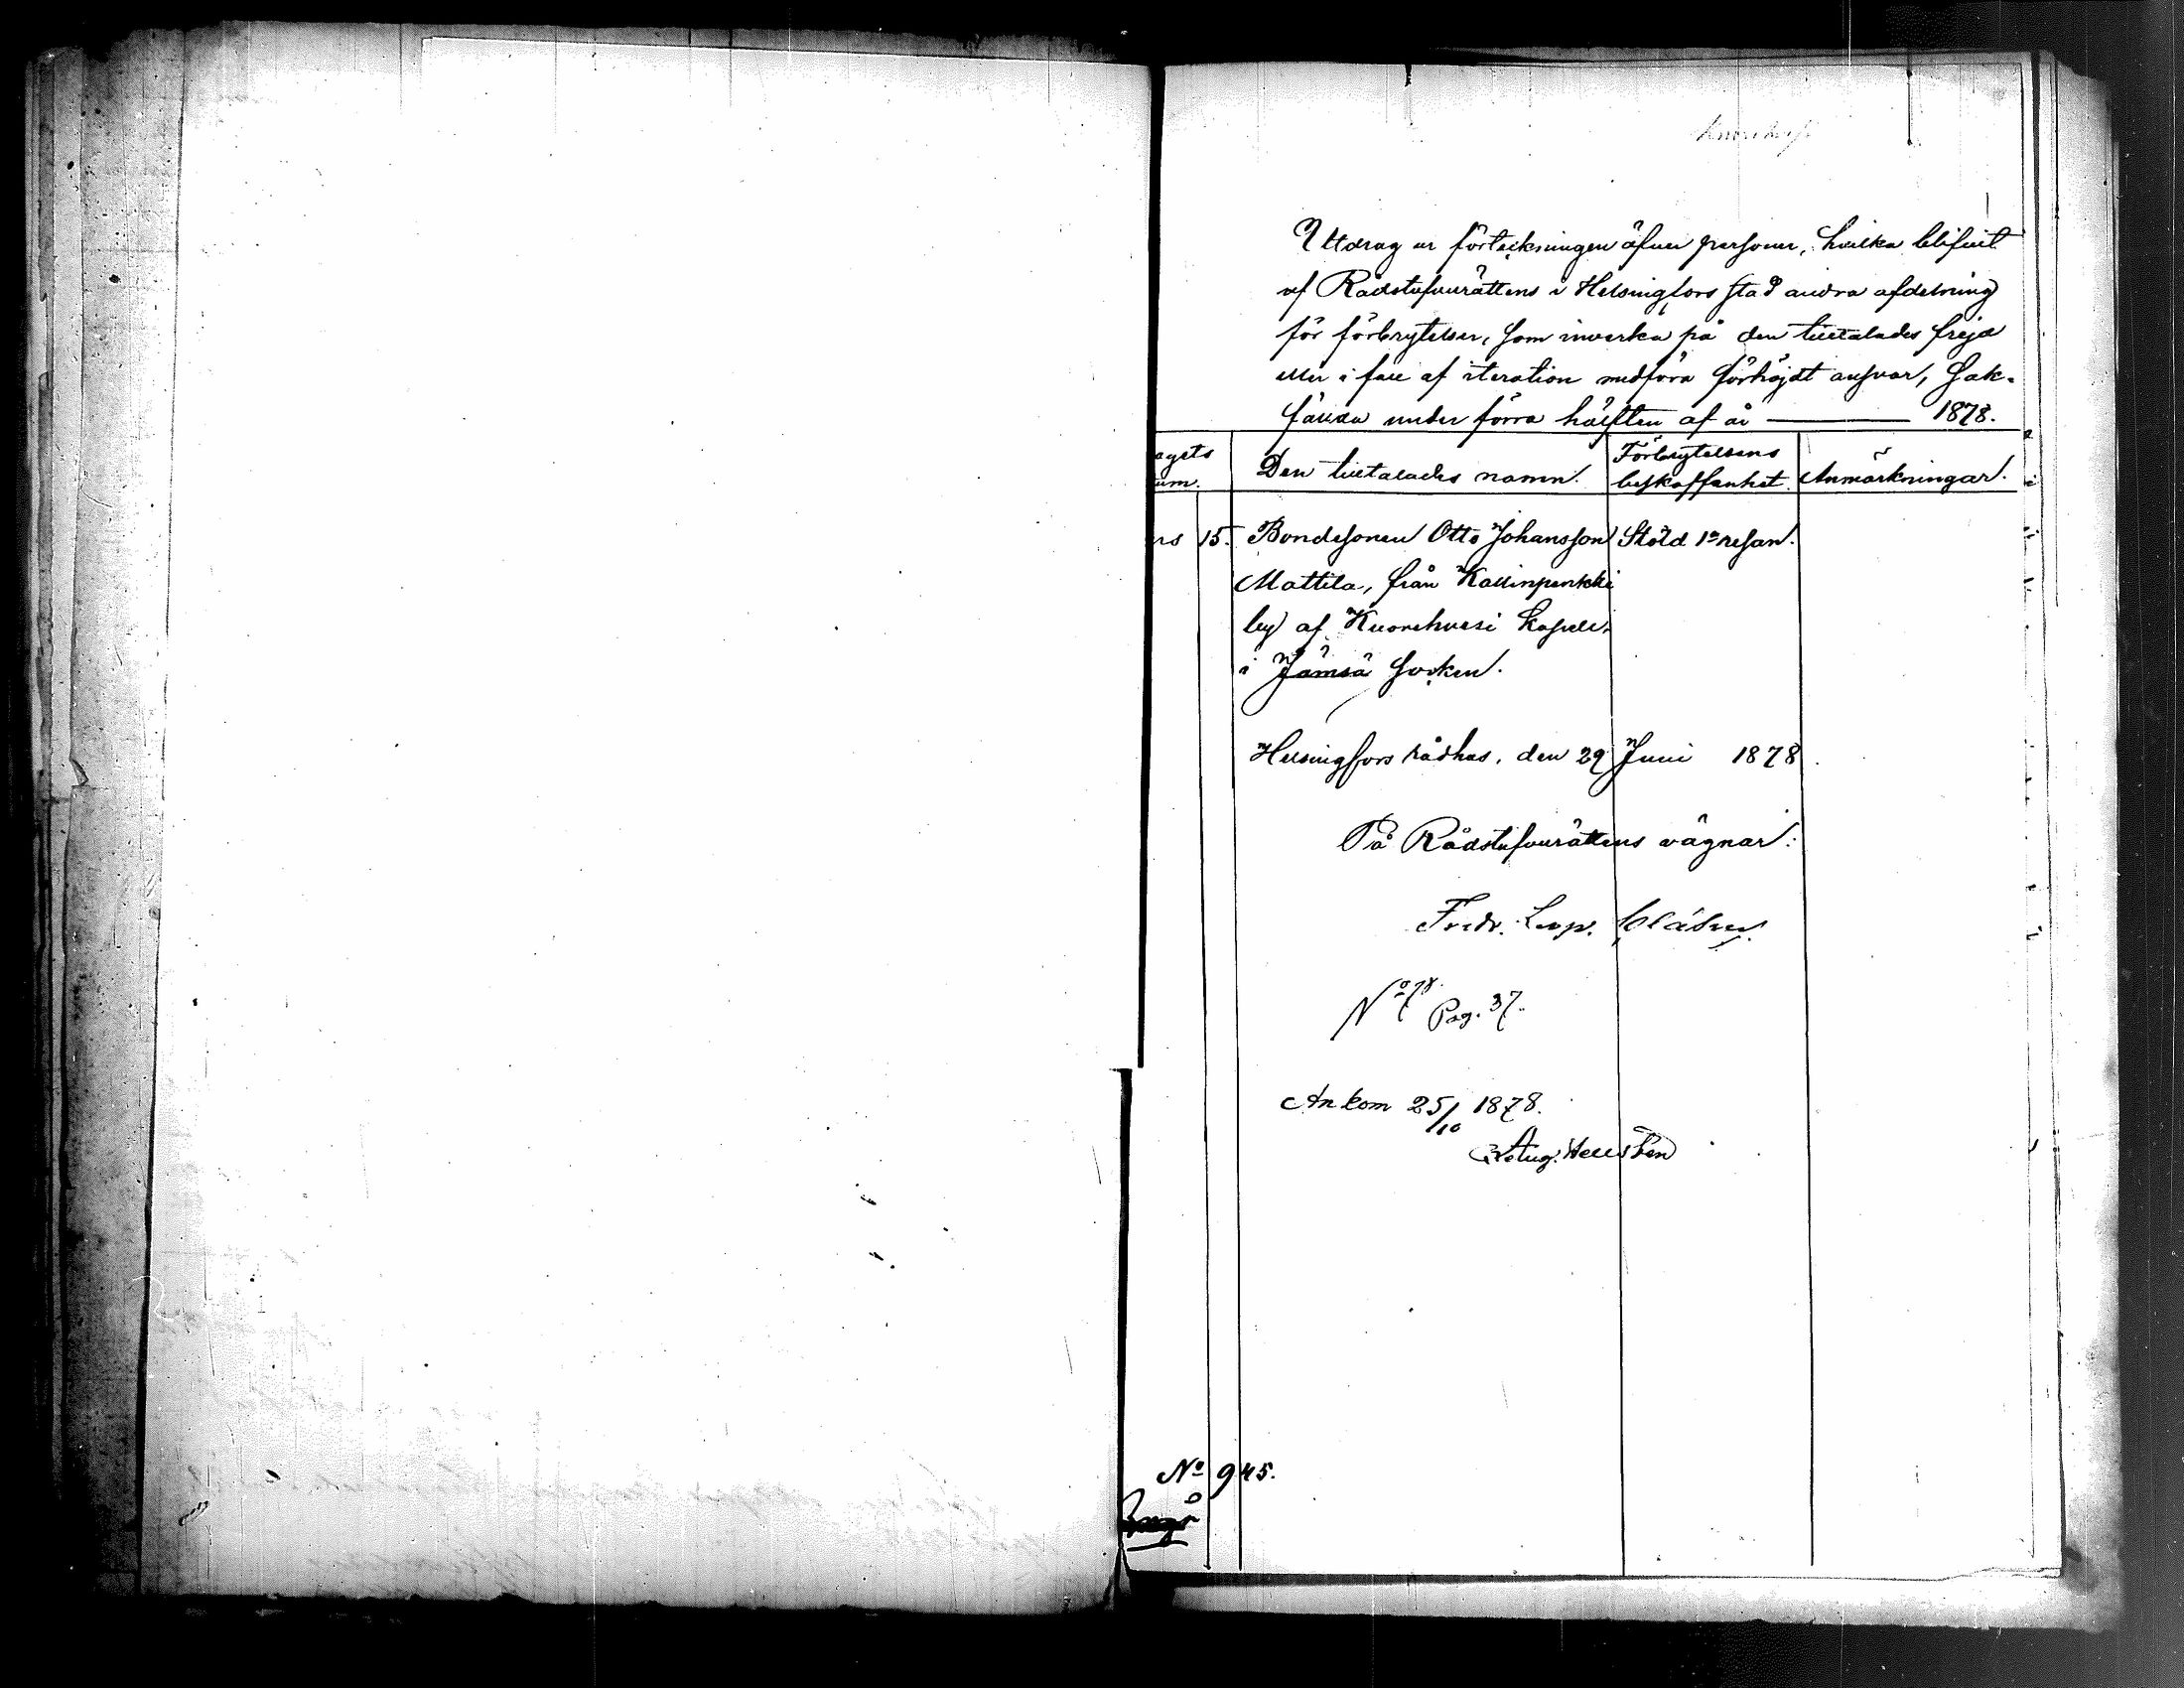 Utdrag ur förteckningen öfver personer, hvilka blifvit
af Rådstufvurättens i Helsingfors stad andra afdelning
för förbrytelser, som inverka på den tilltalades frejd
eller i fall af iteration medföra förhöjdt ansvar, sak-
fällda under förra hälften af år — 1878.
agets
um.
Den tilltalades namn.
Förbrytelsens
beskaffenhet.
Anmärkningar.
rs 15. Bondesonen Otto Johansson Stöld 1a resan.
Mattila, från Kallinpenkki
by af Kuorehvesi kapell
i Jämsä socken.
Helsingfors rådhus, den 29 Juni 1878.
På Rådstufvurättens vägnar:
Fredr. Leop.
No 78. Pag. 37.
Ankom 25/10 1878.
Aug. Hellstén
No 945.